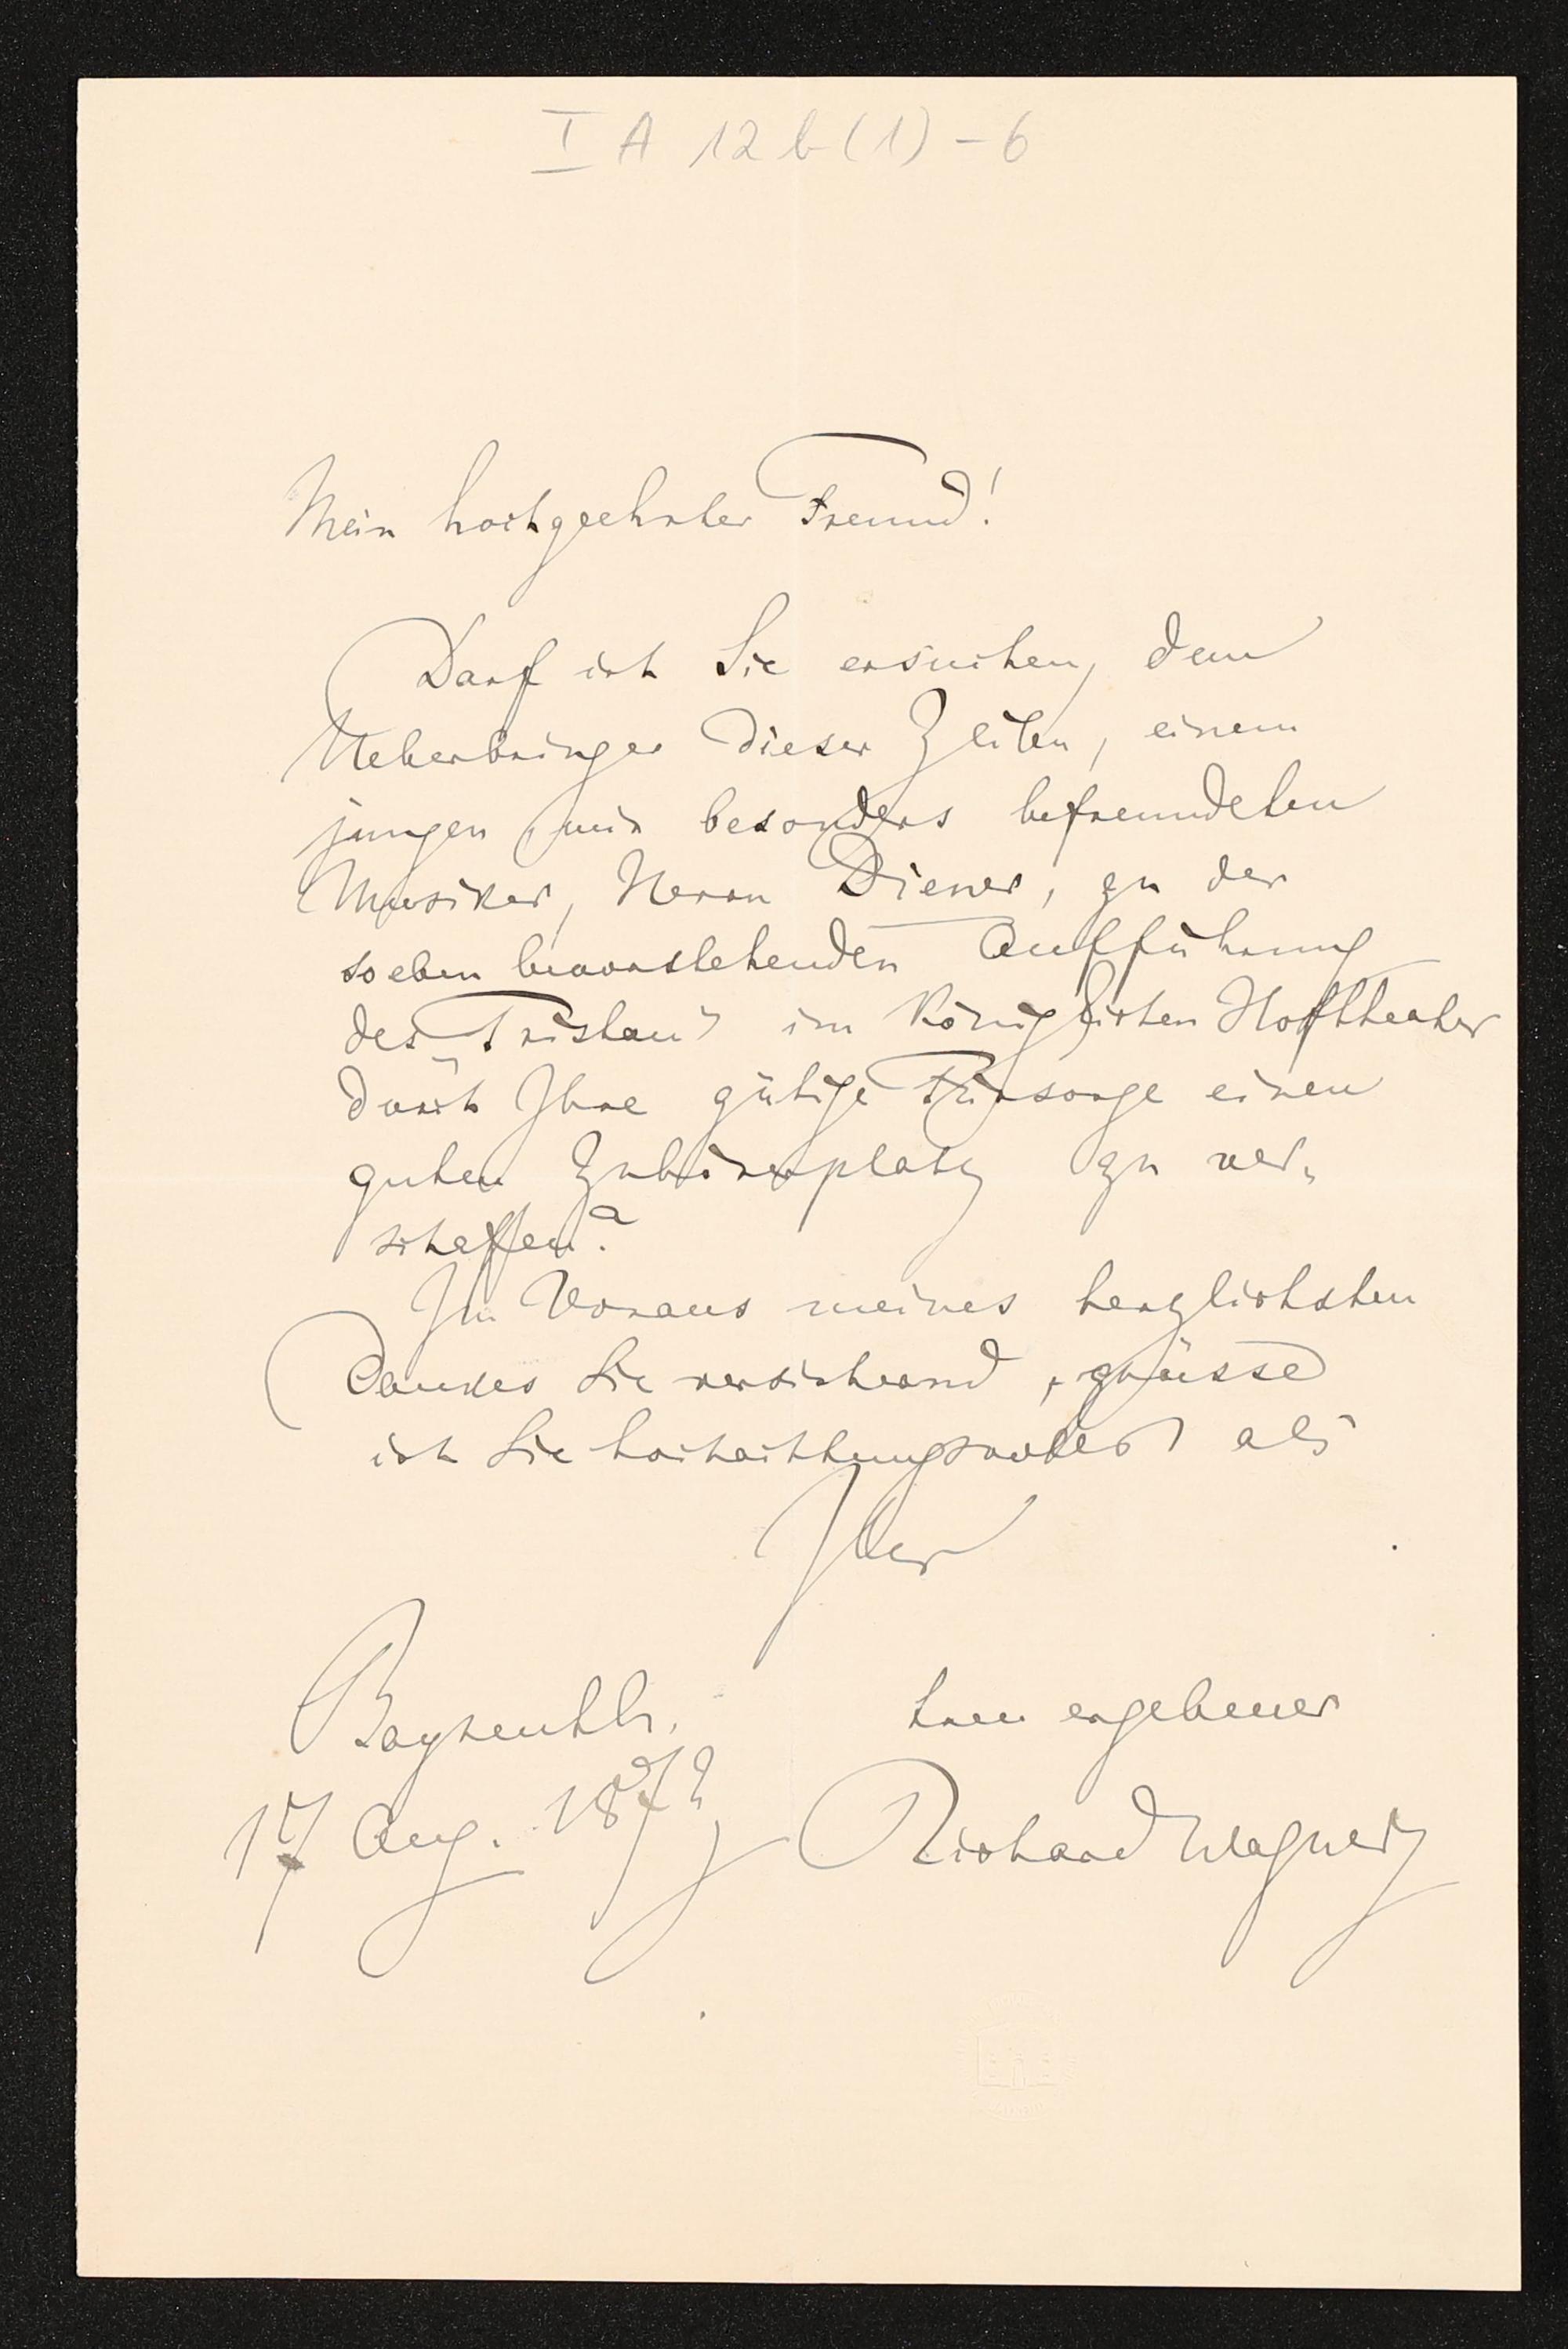 I A 12 b (1) - 6
Mein hochgeehrter Freund!
Darf ich Sie ersuchen, dem
Ueberbringer dieser Zeilen, einem
jungen, mir besonders befreundeten
Musiker, Herrn Diener, zu der
soeben bevorstehenden Aufführung
des „Tristan" im Königlichen Hoftheater
durch Ihre gütige Fürsorge einen
guten Zuhörerplatz zu ver-
schaffen?
Im Voraus meines herzlichsten
Dankes Sie versichernd, grüsse
ich Sie hochachtungsvollst als
Ihr
treu ergebener
Bayreuth.
17 Aug. 1872
Richard Wagner